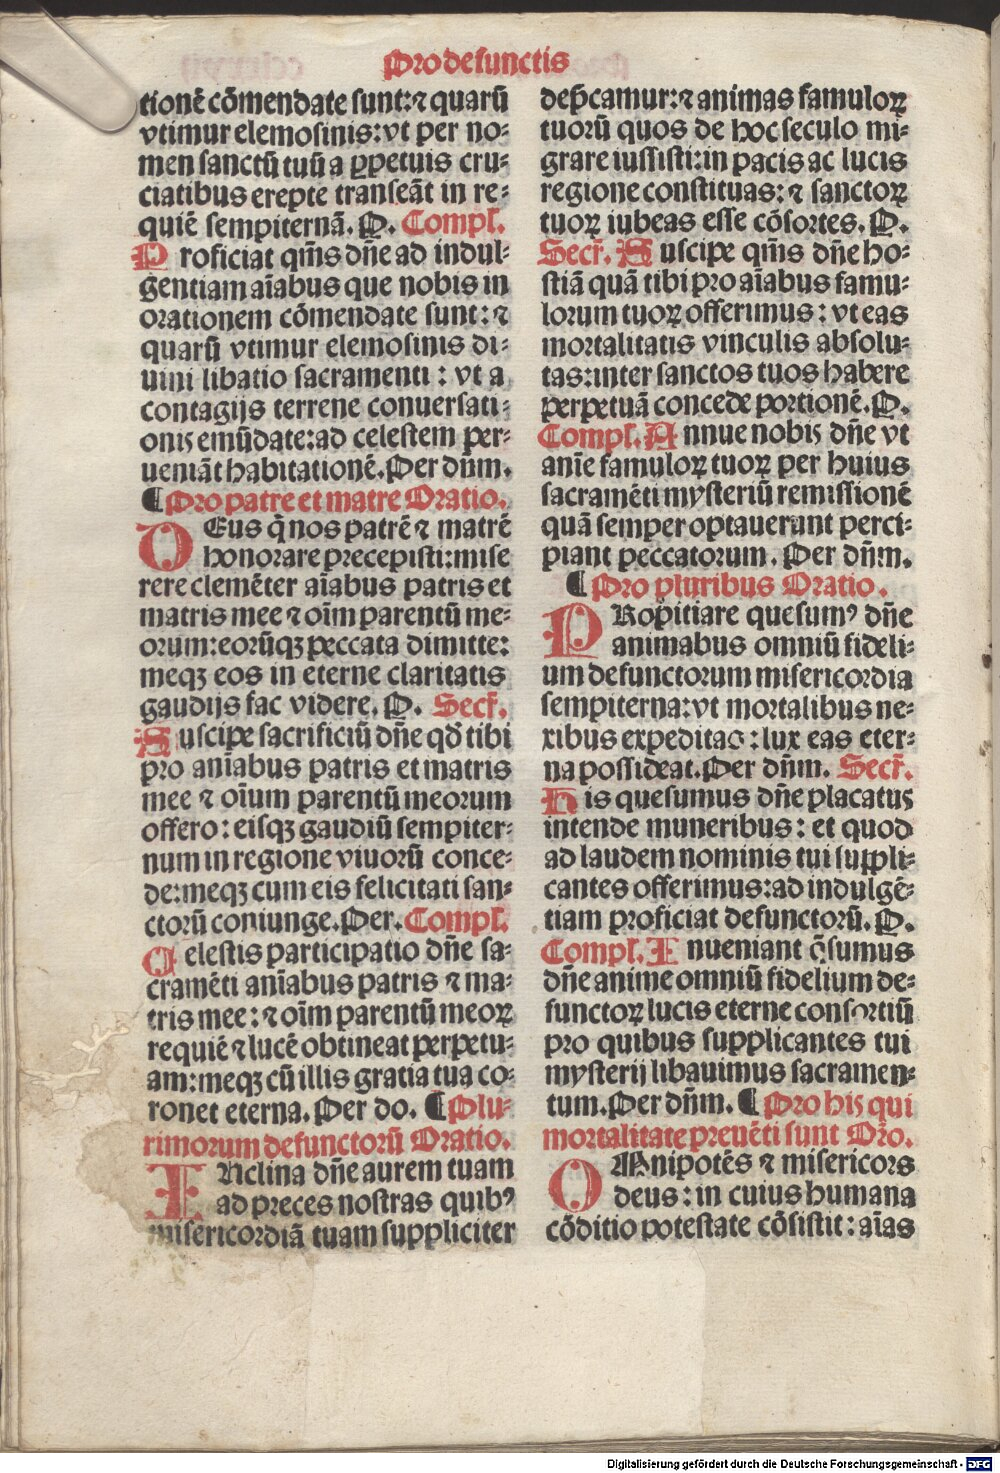 Pro defunctis
tionē cōmendate sunt: ⁊ quarū
vtimur elemosinis: vt per no⸗
men sanctū tuū a ꝑpetuis cru⸗
ciatibus erepte transeāt in re⸗
quiē sempiternā. P. Compl̄.
Proficiat qm̄s dn̄e ad indul⸗
gentiam aīabus que nobis in
orationem cōmendate sunt: ⁊
quarū vtimur elemosinis di⸗
uini libatio sacramenti: vt a
contagijs terrene conuersati⸗
onis emūdate: ad celestem per⸗
ueniāt habitationē. Per dn̄m.
¶ Pro patre et matre Oratio.
DEus q̄ nos patrē ⁊ matrē
honorare precepisti: mise
rere clemēter aīabus patris et
matris mee ⁊ oīm parentū me⸗
orum: eorūqꝫ peccata dimitte:
meqꝫ eos in eterne claritatis
gaudijs fac videre. P. Secr̄.
Suscipe sacrificiū dn̄e qd̄ tibi
pro anīabus patris et matris
mee ⁊ oīum parentū meorum
offero: eisqꝫ gaudiū sempiter⸗
num in regione viuorū conce⸗
de: meqꝫ cum eis felicitati san⸗
ctorū coniunge. Per. Compl̄.
Celestis participatio dn̄e sa⸗
cramēti anīabus patris ⁊ ma⸗
tris mee: ⁊ oīm parentū meoꝝ
requiē ⁊ lucē obtineat perpetu⸗
am: meqꝫ cū illis gratia tua co⸗
ronet eterna. Per do. ¶ Plu⸗
rimorum defunctorū Oratio.
INclina dn̄e aurem tuam
ad preces nostras quibꝰ
misericordiā tuam suppliciter
dep̄camur: ⁊ animas famuloꝝ
tuorū quos de hoc seculo mi⸗
grare iussisti: in pacis ac lucis
regione constituas: ⁊ sanctoꝝ
tuoꝝ iubeas esse cōsortes. P.
Secr̄. Suscipe qm̄s dn̄e ho⸗
stiā quā tibi pro aīabus famu⸗
lorum tuoꝝ offerimus: vt eas
mortalitatis vinculis absolu⸗
tas: inter sanctos tuos habere
perpetuā concede portionē. P.
Compl̄. Annue nobis dn̄e vt
anīe famuloꝝ tuoꝝ per huius
sacramēti mysteriū remissionē
quā semper optauerunt perci⸗
piant peccatorum. Per dn̄m.
¶ Pro pluribus Oratio.
PRopitiare quesumꝰ dn̄e
animabus omniū fideli⸗
um defunctorum misericordia
sempiterna: vt mortalibus ne⸗
xibus expeditas: lux eas eter⸗
na possideat. Per dn̄m. Secr̄.
His quesumus dn̄e placatus
intende muneribus: et quod
ad laudem nominis tui suppli⸗
cantes offerimus: ad indulgē⸗
tiam proficiat defunctorū. P.
Compl̄. Inueniant q̄sumus
dn̄e anime omniū fidelium de⸗
functoꝝ lucis eterne consortiū
pro quibus supplicantes tui
mysterij libauimus sacramen⸗
tum. Per dn̄m. ¶ Pro his qui
mortalitate preuēti sunt Or̄o.
OMnipotēs ⁊ misericors
deus: in cuius humana
cōditio potestate cōsistit: aīas
Digitalisierung gefördert durch die Deutsche Forschungsgemeinschaft - DFG